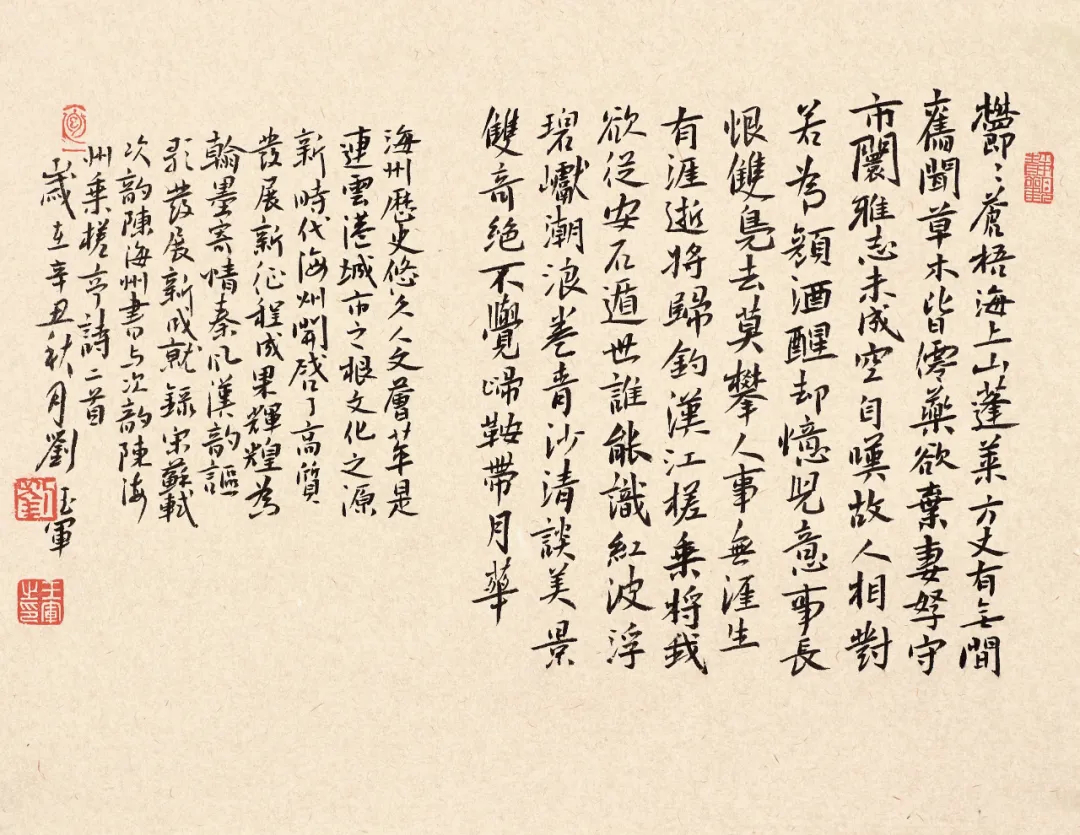 欝〻蒼梧海上山蓬萊方丈有無間
舊聞草木皆僊藥欲棄妻孥守
市闤雅志未成空自嘆故人相對
若為顏酒醒却憶兒意事長
恨雙鳧去莫攀人事無涯生
有涯逝將歸釣漢江槎乘將我
欲從安石遁世誰能識紅波浮
碧巘潮浪卷青沙清談美景
雙奇絕不覺歸鞍帶月華
海州歷史悠久人文薈萃是
連雲港城市之根文化之源
新時代海州開啓了高質
發展新征程成果輝煌為
翰墨寄情秦風漢韵謳
歌發展新成就錄宋蘇軾
次韵陳海州書與次韵陳海
州乘槎亭詩二首
歲在辛丑秋月劉玉軍
劉
玉軍之印